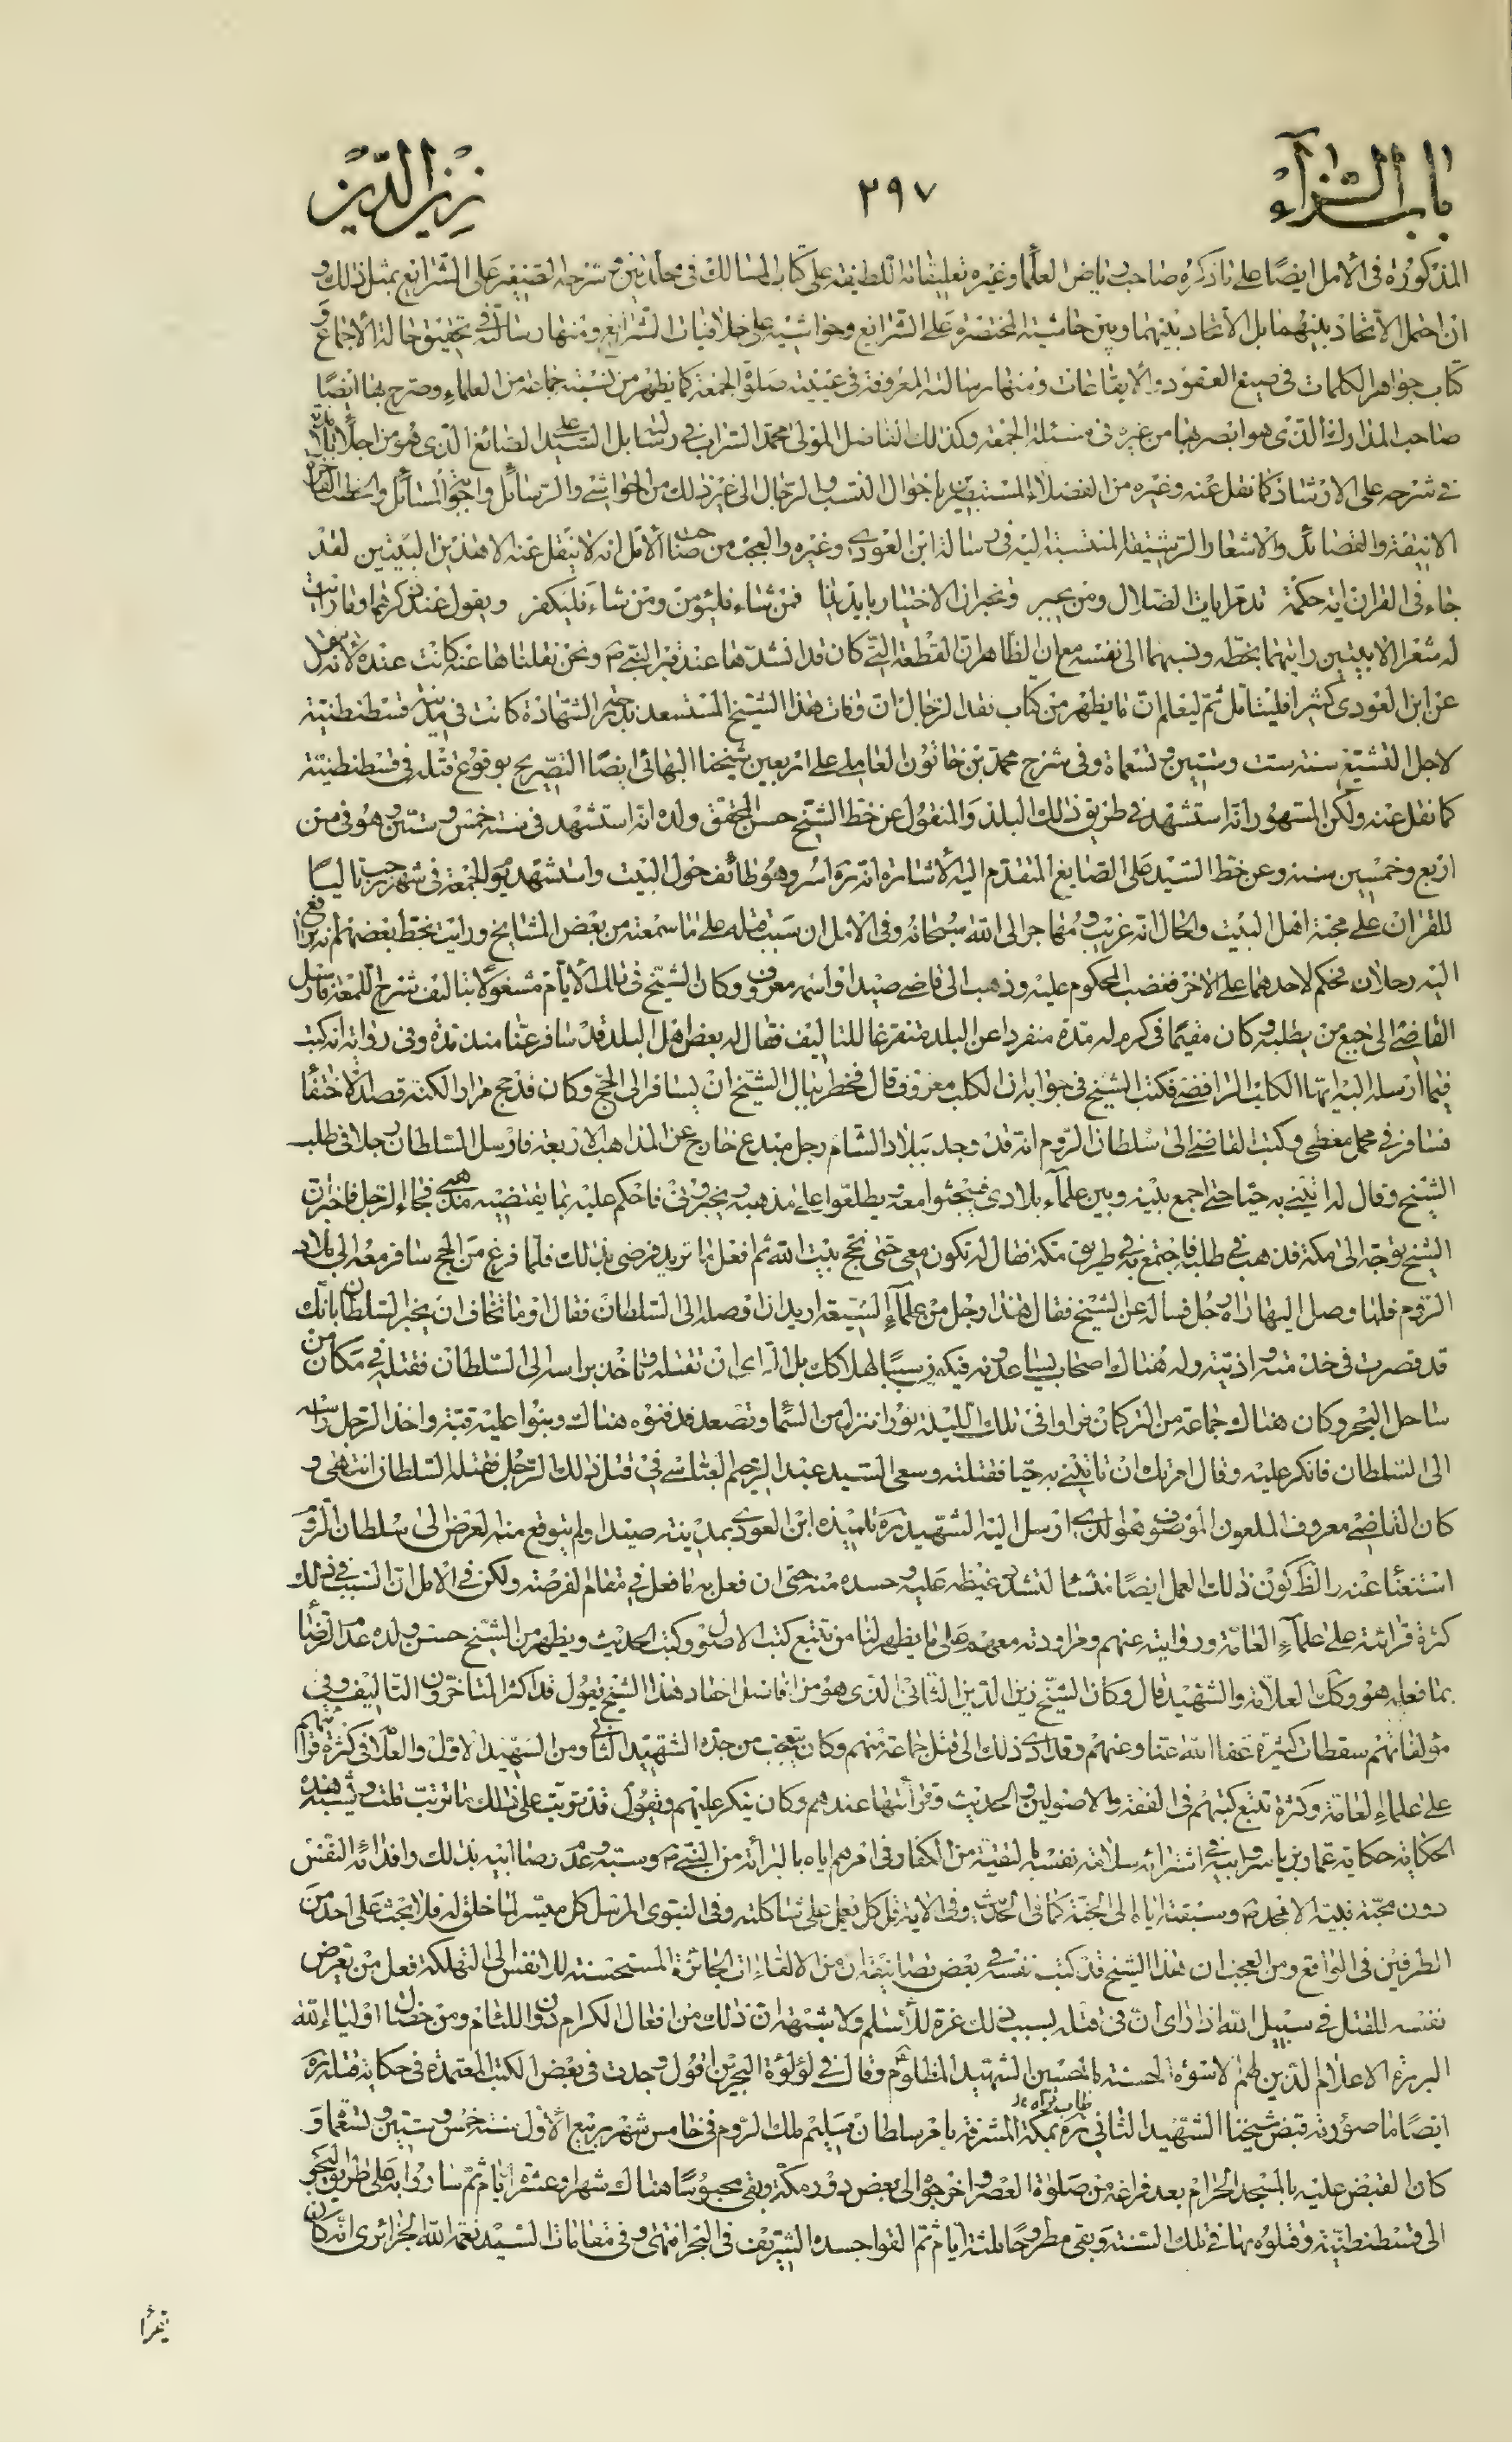 باب الزاء ٢٩٧ زين الدين
المذكورة فى الامل ايضًا على ما ذكره صاحب رياض العلما وغيره تعليقاته اللطيفة على كتاب المسالك فى مجلدين مع شرحه لصيغ على الشرايع بمثل ذلك و
ان احتمل الاتحاد بينهما بل الاتحاد بينهما وبين حاشيته المختصرة على الشرايع وحواشيه على خلافيات الشرايع ومنها رسالته فى تحقيق حالة الاجماع و
كتاب جواهر الكلمات فى صيغ العقود والايقاعات ومنها رسالته المعروفة فى عينية صلوة الجمعة كما يظهر من نسبته جماعة من العلماء وصرح بها ايضًا
صاحب المدارك الذى هو ابصر بها من غيره فى مسئلة الجمعة وكذلك الفاضل المولى محمد السراب فى رسالته بل السيد على الصائغ الذى هو من اجلاء تلامذته
فى شرحه على الارشاد كما نقل عنه وغيره من الفضلاء المستبصرين باحوال النسب والرجال الى غير ذلك من الحواشى والرسائل واجوبة المسائل والخطب الفاخرة
الانيقة والقصائد والاشعار الرشيقة المنتسبة اليه فى رسالة ابن العودى وغيره والعجب من صاحب الامل انه لا ينقل عنه الا هذين البيتين لقد
جاء فى القران اية حكمة تدمر ايات الضلال ومن يجبر وتخبر ان الاختيار بايدينا فمن شاء فليؤمن ومن شاء فليكفر ويقول عند ذكرهما وما رايت
له شعرا الا بيتين رايتهما بخطه ونسبهما الى نفسه مع ان الظاهر ان القطعة التى كان قد انشدها عند قبر النبى ص ونحن نقلناها عنه كانت عنده لانه نقل
عن ابن العودى كثيرا فليتامل ثم ليعلم ان ما يظهر من كتاب نقد الرجال ان وفات هذا الشيخ المستسعد بدرجة الشهادة كانت فى مدينة قسطنطنية
لاجل التشيع سنة ست وستين وتسعماة وفى شرح محمد بن خاتون العاملى على اربعين شيخنا البهائى ايضًا التصريح بوقوع قتله فى قسطنطنية
كما نقل عنه ولكن المشهور انه استشهد فى طريق ذلك البلد والمنقول عن خط الشيخ حسن المحقق ولده انه استشهد فى سنة خمس وستين وهو فى سن
اربع وخمسين سنة وعن خط السيد على الصايغ المتقدم اليه الاشارة انه ره اسر وهو طائف حول البيت واستشهد يوم الجمعة فى شهر رجب تاليا
للقران على محبة اهل البيت والحال انه غريب ومهاجر الى الله سبحانه وفى الامل ان سبب قتله على ما سمعته من بعض المشايخ ورايت بخط بعضهم انه ترافع
اليه رجلان فحكم لاحدهما على الاخر فغضب المحكوم عليه وذهب الى قاضى صيدا واسمه معروف وكان الشيخ فى تلك الايام مشغولا بتاليف شرح اللمعة فارسل
القاضى الى جبع من يطلبه وكان مقيمًا فى كرم له مدة منفردا عن البلد متفرغا للتاليف فقال له بعض اهل البلد قد سافر عنا منذ مدة وفى رواية انه كتب
فيما ارسله اليه ايها الكلب الرافضى فكتب الشيخ فى جوابه ان الكلب معروف قال فخطر ببال الشيخ ان يسافر الى الحج وكان قد حج مرارا لكنه قصد الاختفا
فسافر فى محمل مغطى وكتب القاضى الى سلطان الروم انه قد وجد ببلاد الشام رجل مبدع خارج عن المذاهب الاربعة فارسل السلطان رجلا فى طلب
الشيخ وقال له ائتنى به حيا حتى اجمع بينه وبين علماء بلادى فيبحثوا معه ويطلعوا على مذهبه ويخبرونى فاحكم عليه بما يقتضيه مذهبى فجاء الرجل فاخبر ان
الشيخ توجه الى مكة فذهب فى طلبه فاجتمع به فى طريق مكة فقال له تكون معى حتى نحج بيت الله ثم افعل ما تريد فرضى بذلك فلما فرغ من الحج سافر معه الى بلاد
الروم فلما وصل اليها راه رجل فساله عن الشيخ فقال هذا رجل من علماء الشيعة اريد ان اوصله الى السلطان فقال او ما تخاف ان يخبر السلطان بانك
قد قصرت فى خدمته واذيته وله هناك اصحاب يساعدونه فيكون سببا لهلاكك بل الراى ان تقتله وتاخذ براسه الى السلطان فقتله فى مكان من
ساحل البحر وكان هناك جماعة من التركمان فراوا فى تلك الليلة نورا ينزل من السما وتصعد فدفنوه هناك وبنوا عليه قبة واخذ الرجل راسه
الى السلطان فانكر عليه وقال امرتك ان تاتينى به حيا فقتلته وسعى السيد عبد الرحيم العباسى فى قتل ذلك الرجل فقتله السلطان انتهى و
كان القاضى معروف الملعون الموصوف هو الذى ارسل اليه الشهيد ره تلميذه ابن العودى بمدينة صيدا ولم يتوقع منه العرض الى سلطان الروم
استغنا عنه والظ كون ذلك العمل ايضًا منشا لتشديد غيظه عليه وحسده منه حتى ان فعل به ما فعل فى مقام الفرصة ولكن فى الامل ان السبب فى ذلك
كثرة قرائته على علماء العامة وروايته عنهم ومراودته معهم على ما يظهر لنا من تتبع كتب الاصول وكتب الحديث ويظهر من الشيخ حسن ولده عدم الرضا
بما فعله هو وكك العلامة والشهيد قال وكان الشيخ زين الدين الثانى الذى هو من افاضل احفاد هذا الشيخ يقول قد اكثر المتاخرون التاليف وفى
مؤلفاتهم سقطات كثيرة عفا الله عنا وعنهم وقد ادى ذلك الى قتل جماعة منهم وكان يتعجب من جده الشهيد الثانى ومن الشهيد الاول والعلامة فى كثرة قرائتهم
على علماء العامة وكثرة تتبع كتبهم فى الفقه والاصولين والحديث وقرائتها عندهم وكان ينكر عليهم ويقول قد ترتب على ذلك ما ترتب قلت ويشبه هذه
الحكاية حكاية عمار بن ياسر وابيه فى اشترائه سلامة نفسه بالتقية من الكفار وفى امرهم اياه بالبرائة من النبى ص وسبه وعدم رضا ابيه بذلك وافدائه النفس
دون محبة نبيه الامجد ص وسبقته اياه الى الجنة كما فى الحديث وفى الاية قل كل يعمل على شاكلته وفى النبوى المرسل كل ميسر لما خلق له فلا بحث على احد من
الطرفين فى الواقع ومن العجب ان هذا الشيخ قد كتب نفسه فى بعض تصانيفه ان من الالقاءات الجائزة المستحسنة للانفس الى التهلكة فعل من يعرض
نفسه للقتل فى سبيل الله اذا راى ان فى قتله بسبب ذلك عزة للاسلم ولا شبهة ان ذلك من افعال الكرام دون اللئام ومن خصال اولياء الله
البررة الاعلام الذين لهم الاسوة الحسنة بالحسين الشهيد المظلوم وقال فى لؤلؤة البحرين اقول وجدت فى بعض الكتب المعتمدة فى حكاية قتله ره
ايضًا ما صورته قبض شيخنا الشهيد الثانى ره طاب ثراه بمكة المشرفة بامر سلطان سليم ملك الروم فى خامس شهر ربيع الاول سنة خمس وستين وتسعما و
كان القبض عليه بالمسجد الحرام بعد فراغه من صلوة العصر واخرجوه الى بعض دور مكة وبقى محبوسًا هناك شهرا وعشرة ايام ثم ساروا به على طريق البحر
الى قسطنطنية وقتلوه بها فى تلك السنة وبقى مطروحًا ثلثة ايام ثم القوا جسده الشريف فى البحر انتهى وفى مقامات السيد نعمة الله الجزائرى انه كان